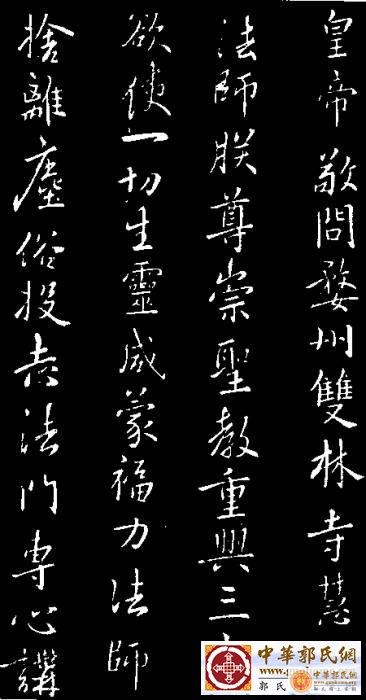 皇帝敬問婺州雙林寺慧
法師朕尊崇聖教重興三
欲使一切生靈咸蒙福力法師
捨離塵俗投志法門專心講
中華郭氏網
郭氏